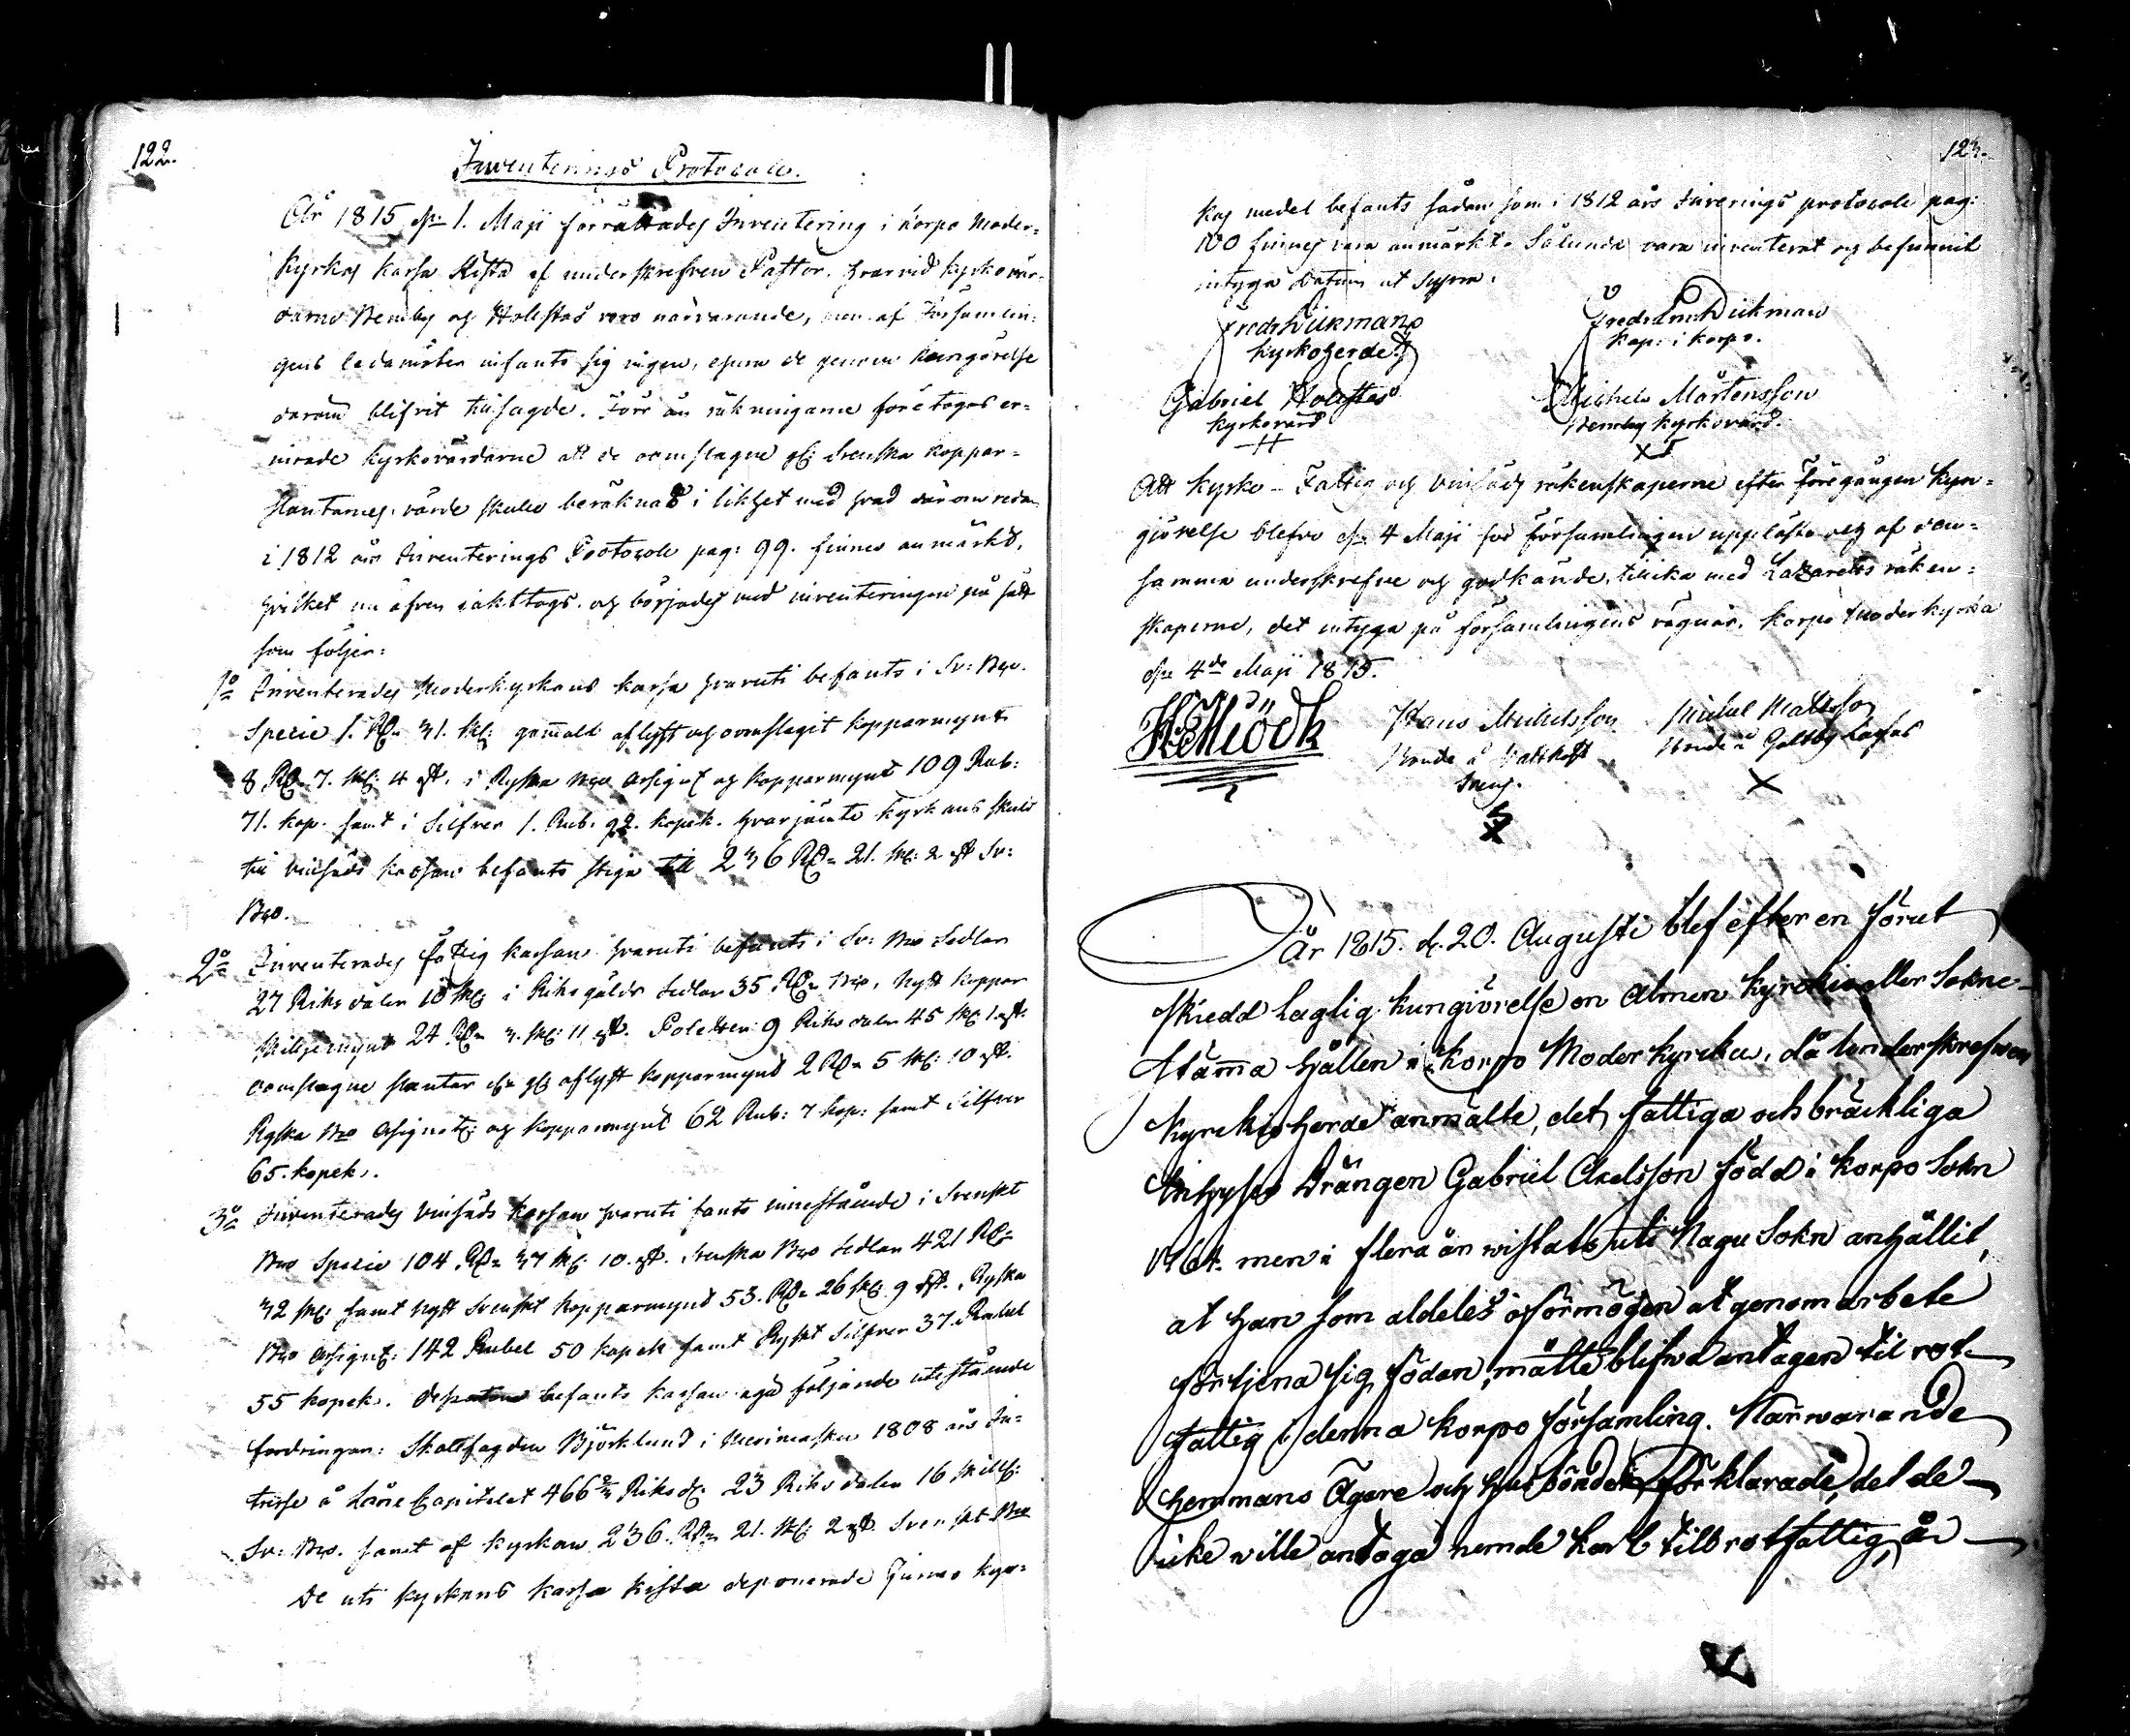 122.
Inventerings Protocoll.
År 1815 d: 1. Maji förrättades Inventering i Korpo Moder-
kyrkas Kassa Kista af underskrefven Pastor. hvarvid kyrkovär-
darne Bemby och Holfstas voro närvarande, men af Församlin-
gens ledamöter infants sig ingen, ehuru de genom kungörelse
darom blifvit tilsagde. Förr än räkningarne företogos er-
inrade kyrkovärdarne att de oomslagne Svenska koppar-
slantarnes värde skulle beräknas i likhet med hvad därom reda
i 1812 års Inventerings Protocoll pag: 99. finnes anmärkt,
hvilket nu äfven iakttogs. och börjades med inventeringen på sätt
som följer:
1o Inventerades Moderkyrkans kassa hvaruti befants i Sv: Bco.
Specie 1. Rd 31. sk: gammalt aflyst och oomslagit kopparmynt
8 Rd 7. sk: 4 rst. i Ryska Bco Assignat och kopparmynt 109 Rub:
71. kop. samt i Silfver 1. Rub. 92. kopek. hvarjämte kyrkans skuld
til vinsäds kassan befants stiga till 236 Rd 21. sk: 2 rst Sv:
Bco.
2o Inventerades Fattig kassan hvaruti befants i Sv: Bco Sedlar
27 Riksdaler 18 sk: i Riksgälds Sedlar 35 Rd Bco, Nytt koppar
skiljemynt 24 Rd 3. sk: 11 rst. Poletter 9 Riksdaler 45 sk: 1. rst.
oomslagne slantar aflyst kopparmynt 2 Rd 5 sk: 10 rst.
Ryska Bco Assignat: och kopparmynt 62 Rub: 7 kop: samt Silfver
65. kopek.
3o Inventerades vinsäds kassan hvaruti fants innestående i Svenskt
Bco Specie 104 Rd 37 sk: 10. rst. Svenska Bco Sedlar 421 Rd
32 sk: samt nytt Svenskt kopparmynt 53. Rd 26 sk: 9 rst., Ryska
Bco Assignat: 142 Rubel 50 kopek samt Ryskt Silfver 37. Rubel
55 kopek. befants kassan äga följande utestående
fordringar: Skattfogden Björklund i Merimasku 1808 års In-
tresse å Låne Capitalet 466 2/3 Riksd: 23 Riksdaler 16 skill:
Sv: Bco. samt af kyrkan 236. Rd 21. sk: 2 rst. Svenskt Bco
De uti kyrkans kassa kista deponerade Finnes kyr-
123.
kas medel befants sådan som i 1812 års Inverings protocoll pag:
100 finnes vara anmärkt. Sålunda vara inventerat och befunnit
intyga Datum ut supra.
Fredr: Lückman Fredr:
kyrkoherde Kap: i Korpo.
Gabriel Holfstas Michels Mårtensson
kyrkovärd Bemby kyrkovärd.
Att kyrko- Fattig och vinsäds räkenskaperne efter föregången kun-
giörelse blefvo d: 4 Maji för församlingen uppläste och af den-
samma underskrefne och godkände, tillika med Lazaretts räken-
skaperne, det intyga på församlingens vägnar. Korpo Moderkyrka
d: 4de Maji 1815.
Hans Michelsson Michel Mattsson
Bonde å Bonde å Galtby
År 1815. d. 20. Augusti blef efter en förut
skiedd Laglig kungiörelse en Almen kyrckio eller Sokne-
stämma hållen i Korpo Moderkyrcka, då Underskrefven
kyrckioherde anmälte, det fattiga och bräckliga
Inhyses Drängen Gabriel Axelsson född i Korpo Sokn
1764. men i flera år wistats uti Nagu Sokn anhållit,
at han som aldeles oförmögen at genom arbete
förtjena sig födan, måtte blifwa antagen til rot-
fattig i denna Korpo Församling. Närwarande
Hemmans Ägare och Husbönder förklarade, det de
icke wille antaga nemde karl till rotfattig, år